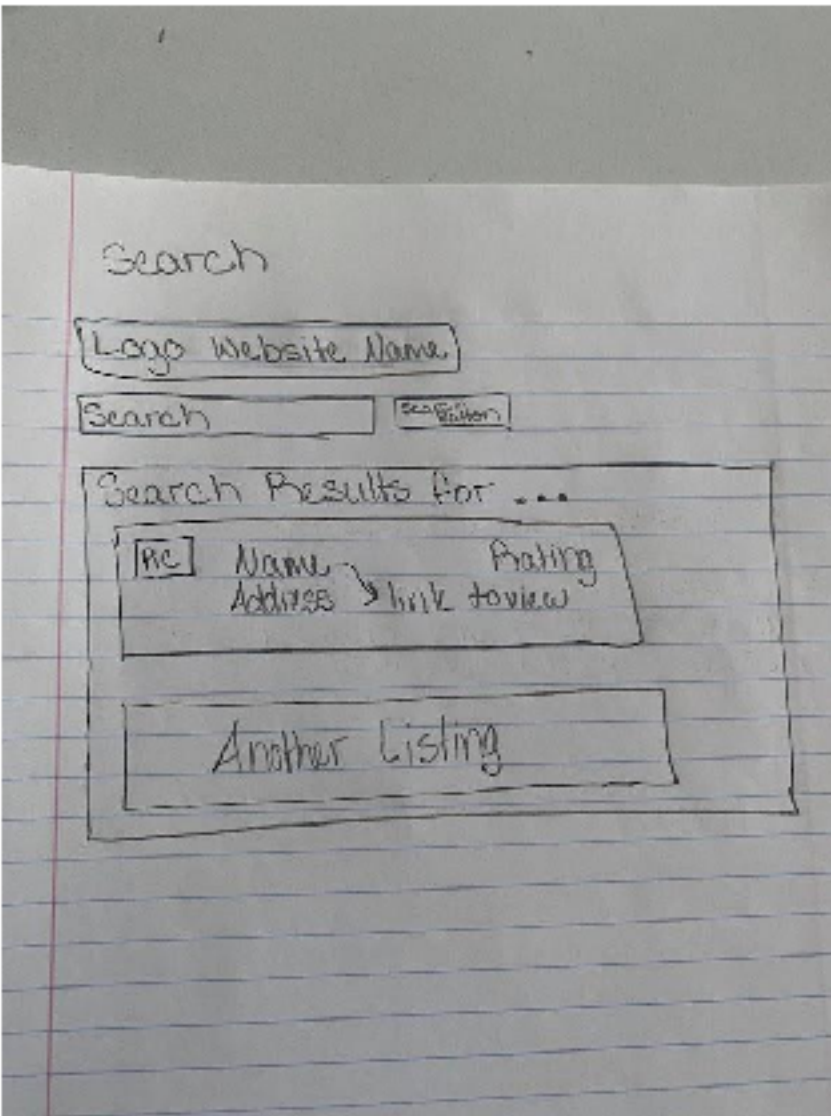 Search
Logo Website Name
Search Search Button
Search Results for ...
Pic Name Rating
Address link to view
Another Listing